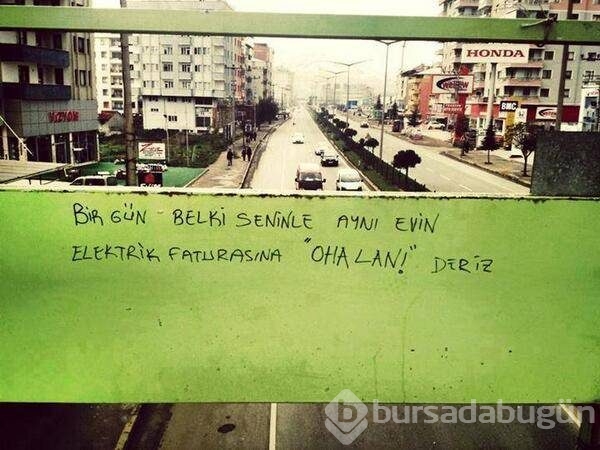 HONDA
BMC
VİZYON
BİR GÜN BELKİ SENİNLE AYNI EVİN
ELEKTRİK FATURASINA "OHA LAN!" DERİZ
bursadabugün